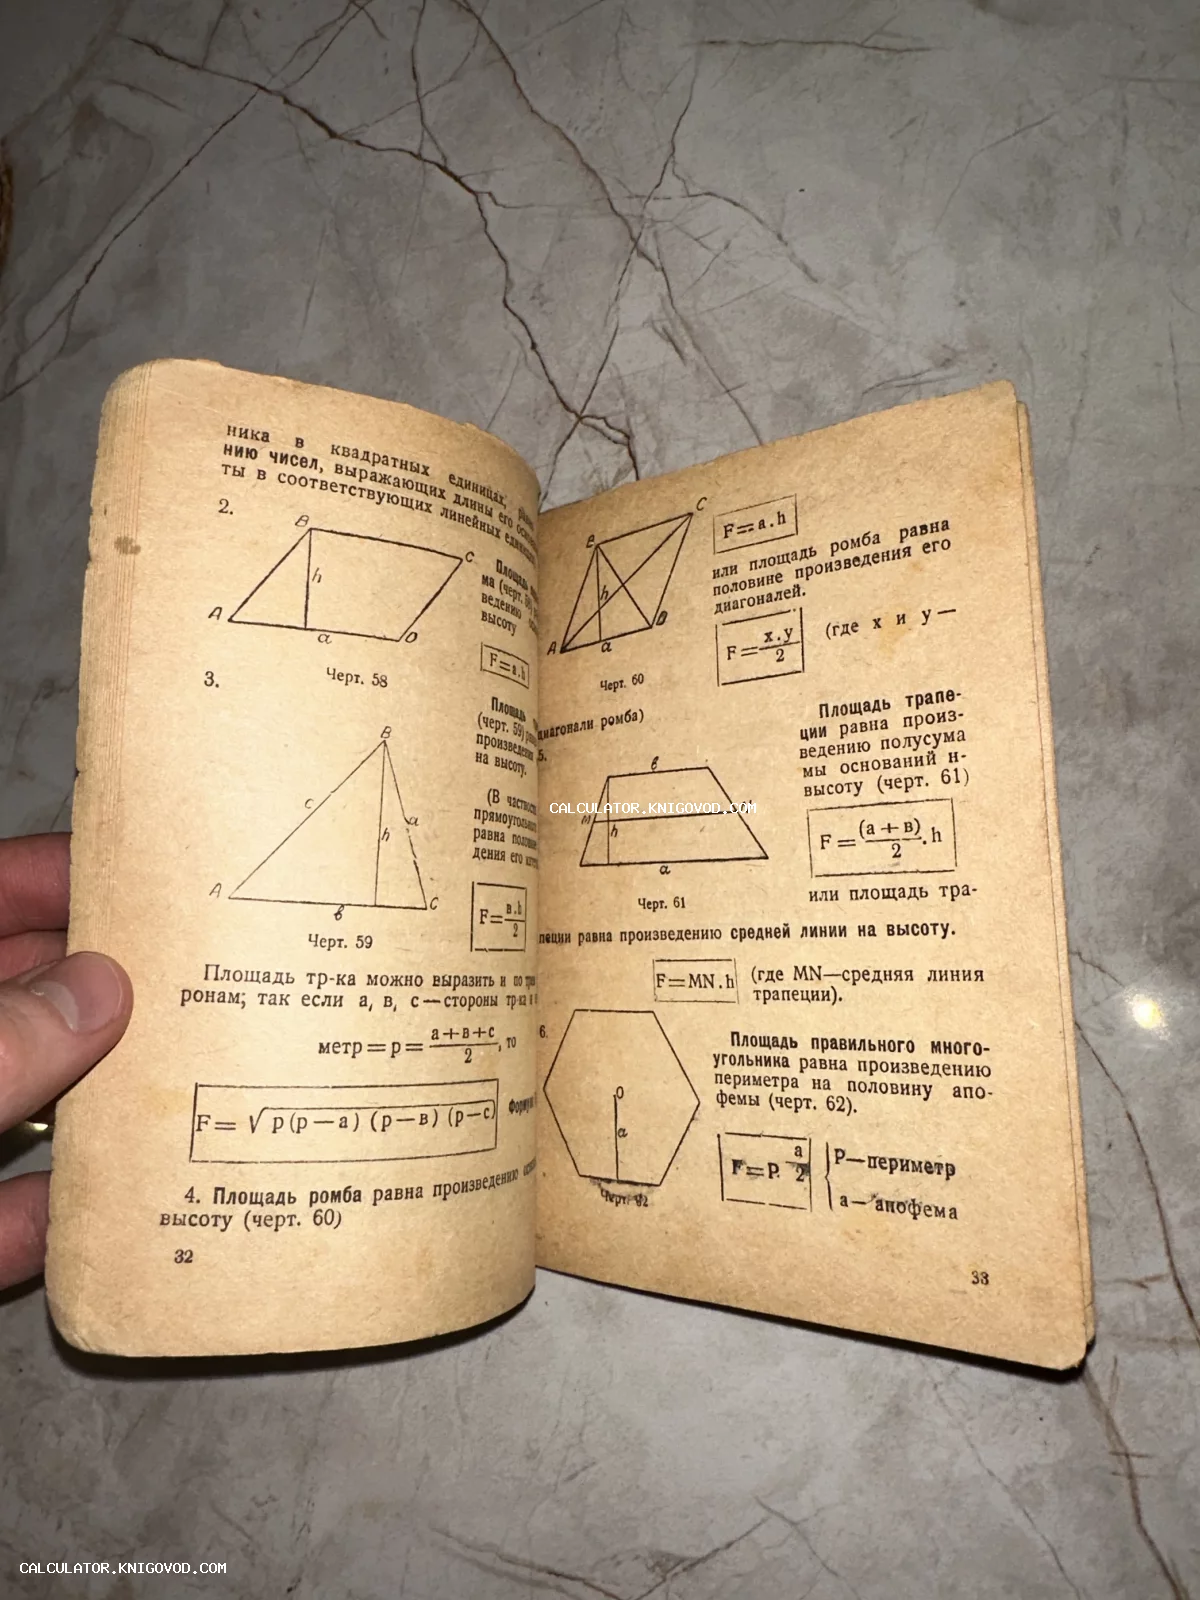 ника в квадратных единицах,
нию чисел, выражающих длины его
ты в соответствующих линейных
2.
B
C
h
A
a
D
Площадь
ма (черт.
ведению
высоту
F=a.h
Черт. 58
3.
Площадь
(черт. 59)
произведения
на высоту.
B
c
a
h
A
в
C
(В
прямоугольного
равна
дения его
F=в.h/2
Черт. 59
Площадь тр-ка можно выразить и по
ронам; так если a, в, c—стороны тр-ка и
метр=p=a+в+c/2, то
F= √p(p—a) (p—в) (p—c)
4. Площадь ромба равна произведению
высоту (черт. 60)
32
C
B
h
A
a
D
Черт. 60
F=a.h
или площадь ромба равна
половине произведения его
диагоналей.
F=x.y/2 (где x и y —
диагонали ромба)
5.
в
M
h
a
Черт. 61
Площадь трапе-
ции равна произ-
ведению полусума
мы оснований н-
высоту (черт. 61)
F=(a+в)/2.h
или площадь тра-
пеции равна произведению средней линии на высоту.
F=MN.h (где MN—средняя линия
трапеции).
6.
O
a
Черт. 62
Площадь правильного много-
угольника равна произведению
периметра на половину апо-
фемы (черт. 62).
F=P a/2
P—периметр
a—апофема
33
CALCULATOR.KNIGOVOD.COM
CALCULATOR.KNIGOVOD.COM